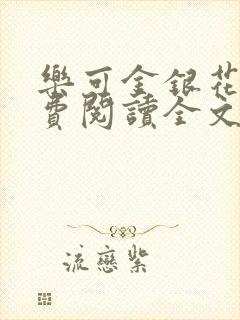 樂可金銀花
費閱讀全文
流戀紫